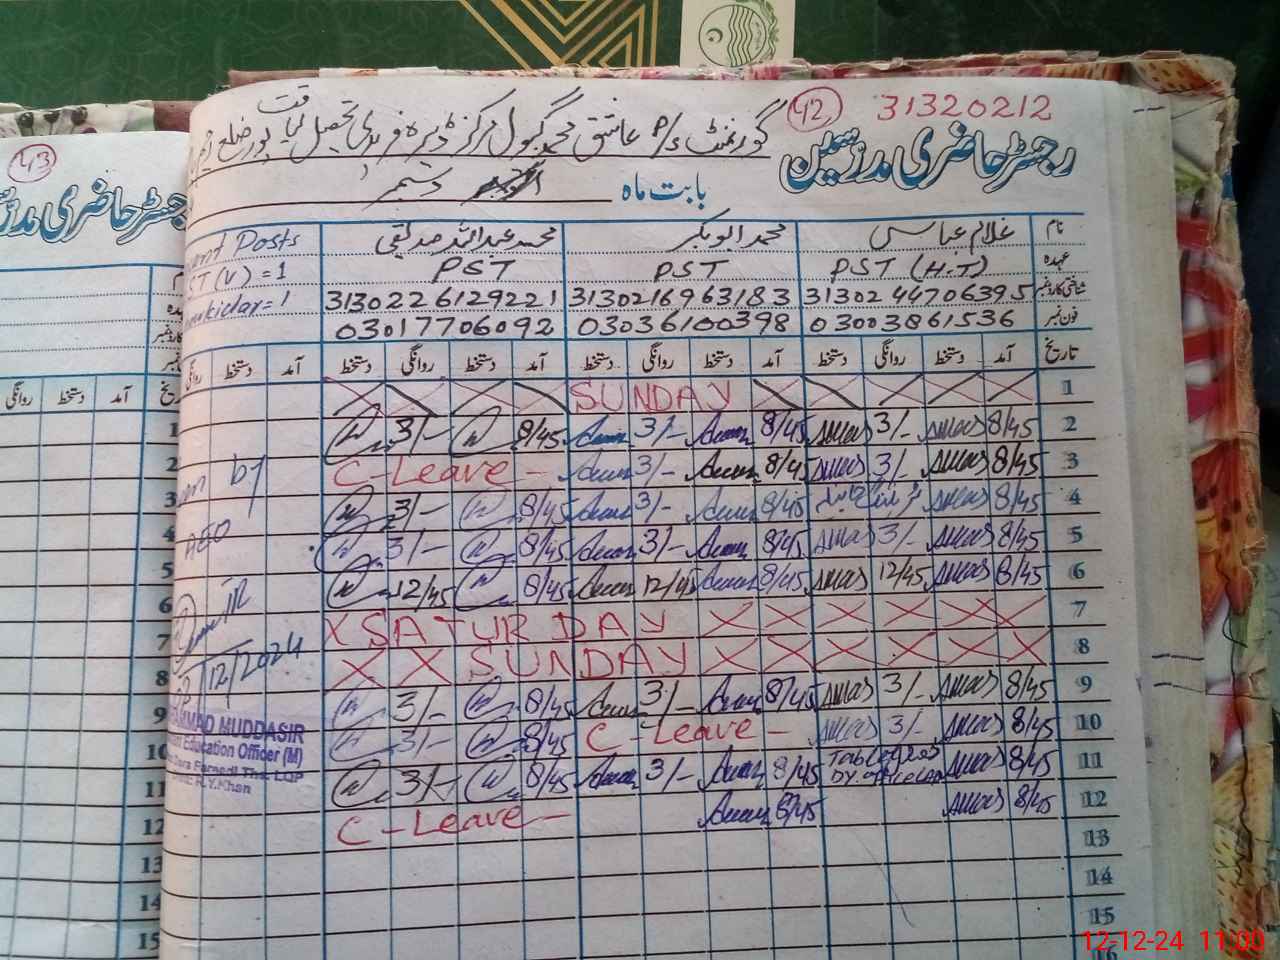 42 31320212
رجسٹر حاضری مدرسین
گورنمنٹ P/S عاشق محمد گبول مرکز ڈیرہ فریدی تحصیل لیاقت پور ضلع
بابت ماہ دسمبر
نام غلام عباس محمد ابوبکر محمد عبداللہ صدیقی Posts
عہدہ PST (H.T) PST PST (V) = 1
شناختی کارڈ نمبر 3130244706395 3130216963183 3130226129221 = 1
فون نمبر 03003861536 03036100398 03017706092
تاریخ آمد دستخط روانگی دستخط آمد دستخط روانگی دستخط آمد دستخط روانگی دستخط آمد دستخط روانگی
1 SUNDAY
2 8/45 3/- 8/45 3/- 8/45 3/-
3 8/45 3/- 8/45 3/- C-Leave -
4 8/45 8/45 3/- 8/45 3/-
5 8/45 3/- 8/45 3/- 8/45 3/-
6 8/45 12/45 8/45 12/45 8/45 12/45
7 X SATURDAY X X X X X X
8 X X SUNDAY X X X X X X
9 8/45 3/- 8/45 3/- 8/45 3/-
10 8/45 3/- C-Leave - 8/45 3/-
11 8/45 8/45 3/- 8/45 3/-
12 8/45 8/45 C-Leave -
13
14
15
16
by
AEO
12/2024
MUDDASIR
Education Officer (M)
43
رجسٹر حاضری
آمد دستخط روانگی
1
2
3
4
5
6
7
8
9
10
11
12
13
14
15
12-12-24 11:00